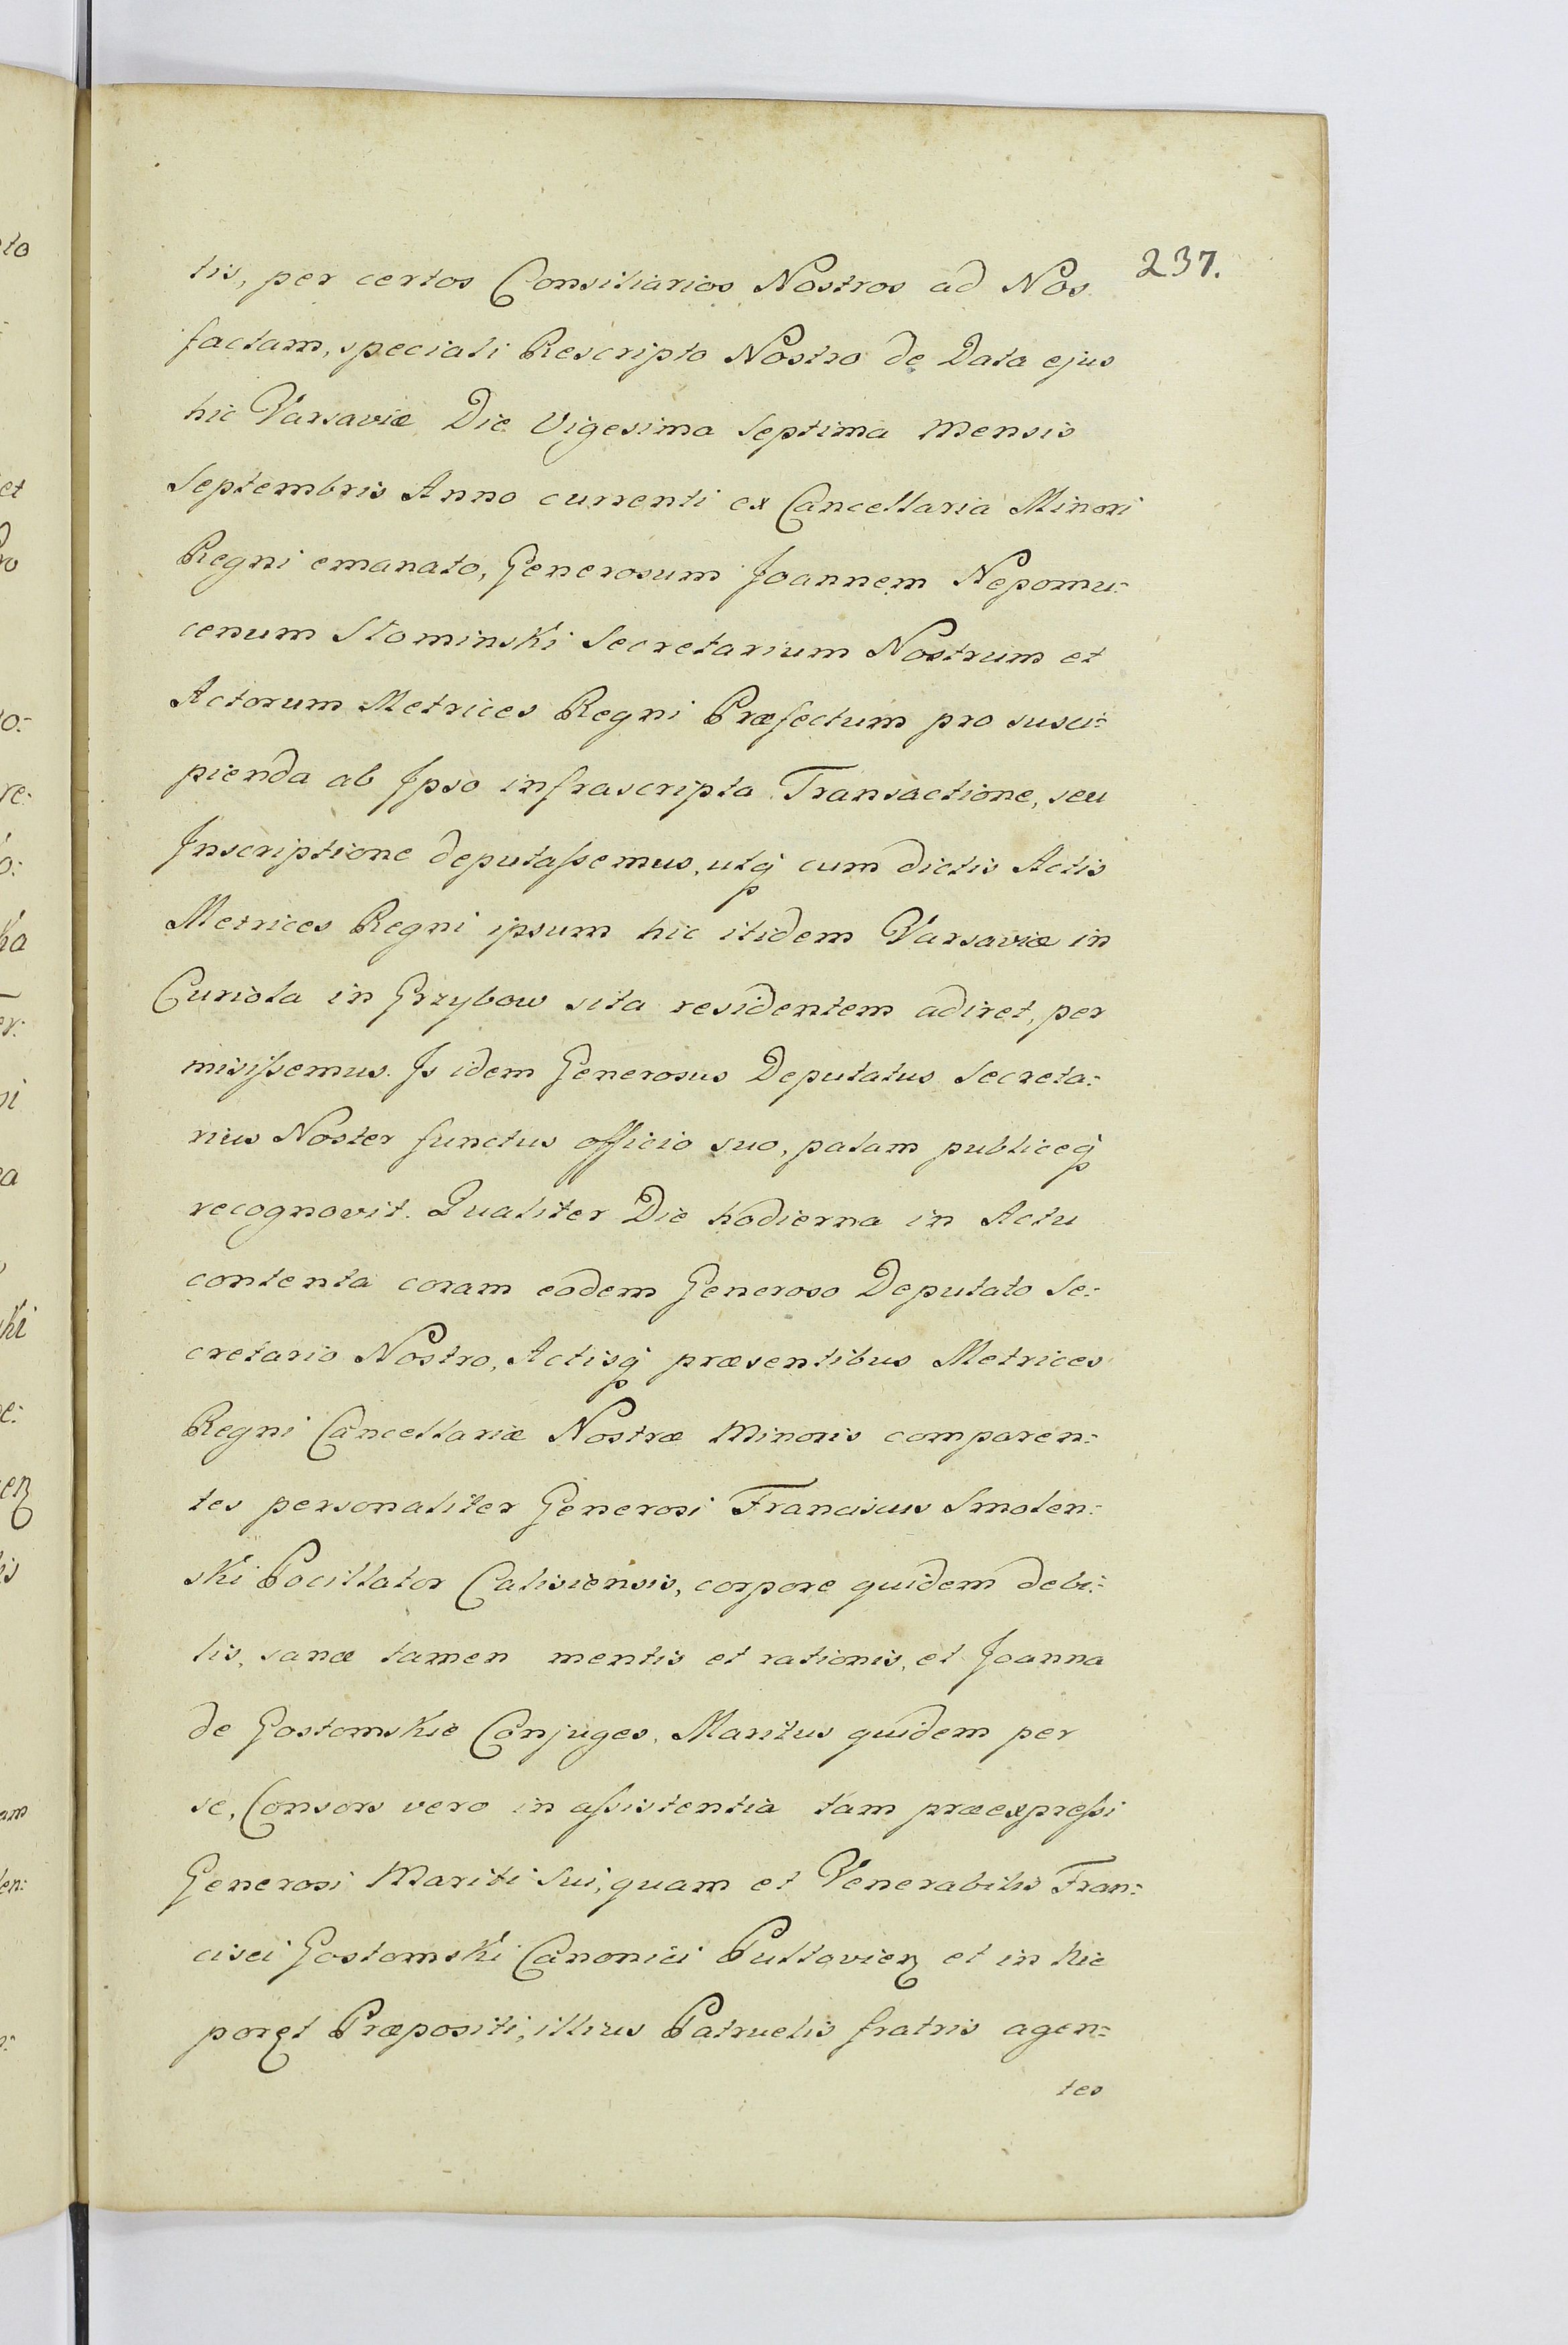 237.
tis, per certos Consiliarios Nostros ad Nos
factam, speciali Rescripto Nostro de Data ejus
hic Varsaviæ Die Vigesima Septima Mensis
Septembris Anno currenti ex Cancellaria Minori
Regni emanato, Generosum Joannem Nepomu:
cenum Słominski Secretarium Nostrum et
Actorum Metrices Regni Præfectum pro susci:
pienda ab Ipso infrascripta Transactione, seu
Inscriptione deputassemus, utq cum dictis Actis
Metrices Regni ipsum hic itidem Varsaviæ in
Curiola in Grzybow sita residentem adiret, per
misissemus. Is idem Generosus Deputatus Secreta:
rius Noster functus officio suo, palam publiceq
recognovit. Qualiter Die hodierna in Actu
contenta coram eodem Generoso Deputato Se:
cretario Nostro, Actisq præsentibus Metrices
Regni Cancellariæ Nostræ Minoris comparen:
tes personaliter Generosi Franciscus Smolen:
ski Pocillator Calisiensis, corpore quidem debi:
lis, sanæ tamen mentis et rationis, et Joanna
de Gostomskie Conjuges, Maritus quidem per
se, Consors vero in assistentia tam præexpressi
Generosi Mariti Sui, quam et Venerabilis Fran:
cisci Gostomski Canonici Pultavien et in hic
poręt Præpositi, illius Patruelis fratris agen:
tes